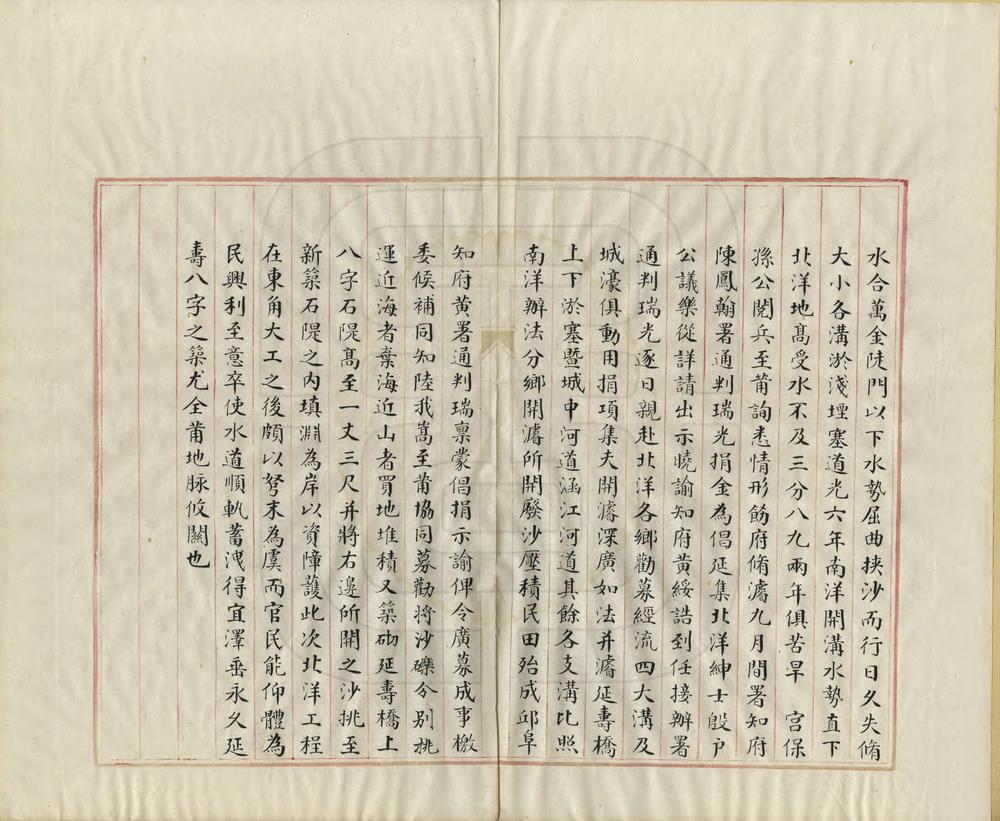 水合萬金陡門以下水勢屈曲挾沙而行日久失脩
大小各溝淤淺堙塞道光六年南洋開溝水勢直下
北洋地髙受水不及三分八九兩年俱苦旱　宮保
孫公閱兵至莆詢悉情形飭府脩濬九月間署知府
陳鳳翰署通判瑞光捐金為倡延集北洋紳士殷户
公議樂從詳請出示曉諭知府黃綏誥到任接辦署
通判瑞光逐日親赴北洋各鄉勸募經流四大溝及
城濠俱動用捐項集夫開濬深廣如法并濬延壽橋
上下淤塞暨城中河道涵江河道其餘各支溝比照
南洋辦法分鄉開濬所開廢沙壓積民田殆成邱阜
知府黃署通判瑞稟蒙倡捐示諭俾令廣募成事檄
委候補同知陸我嵩至莆協同募勸將沙礫令别挑
運近海者棄海近山者買地堆積又築砌延壽橋上
八字石隄髙至一丈三尺并將右邊所開之沙挑至
新築石隄之内填淵為岸以資障護此次北洋工程
在東角大工之後頗以弩末為虞而官民能仰體為
民興利至意卒使水道順軌蓄洩得宜澤垂永久延
壽八字之築尤全莆地脉攸關也